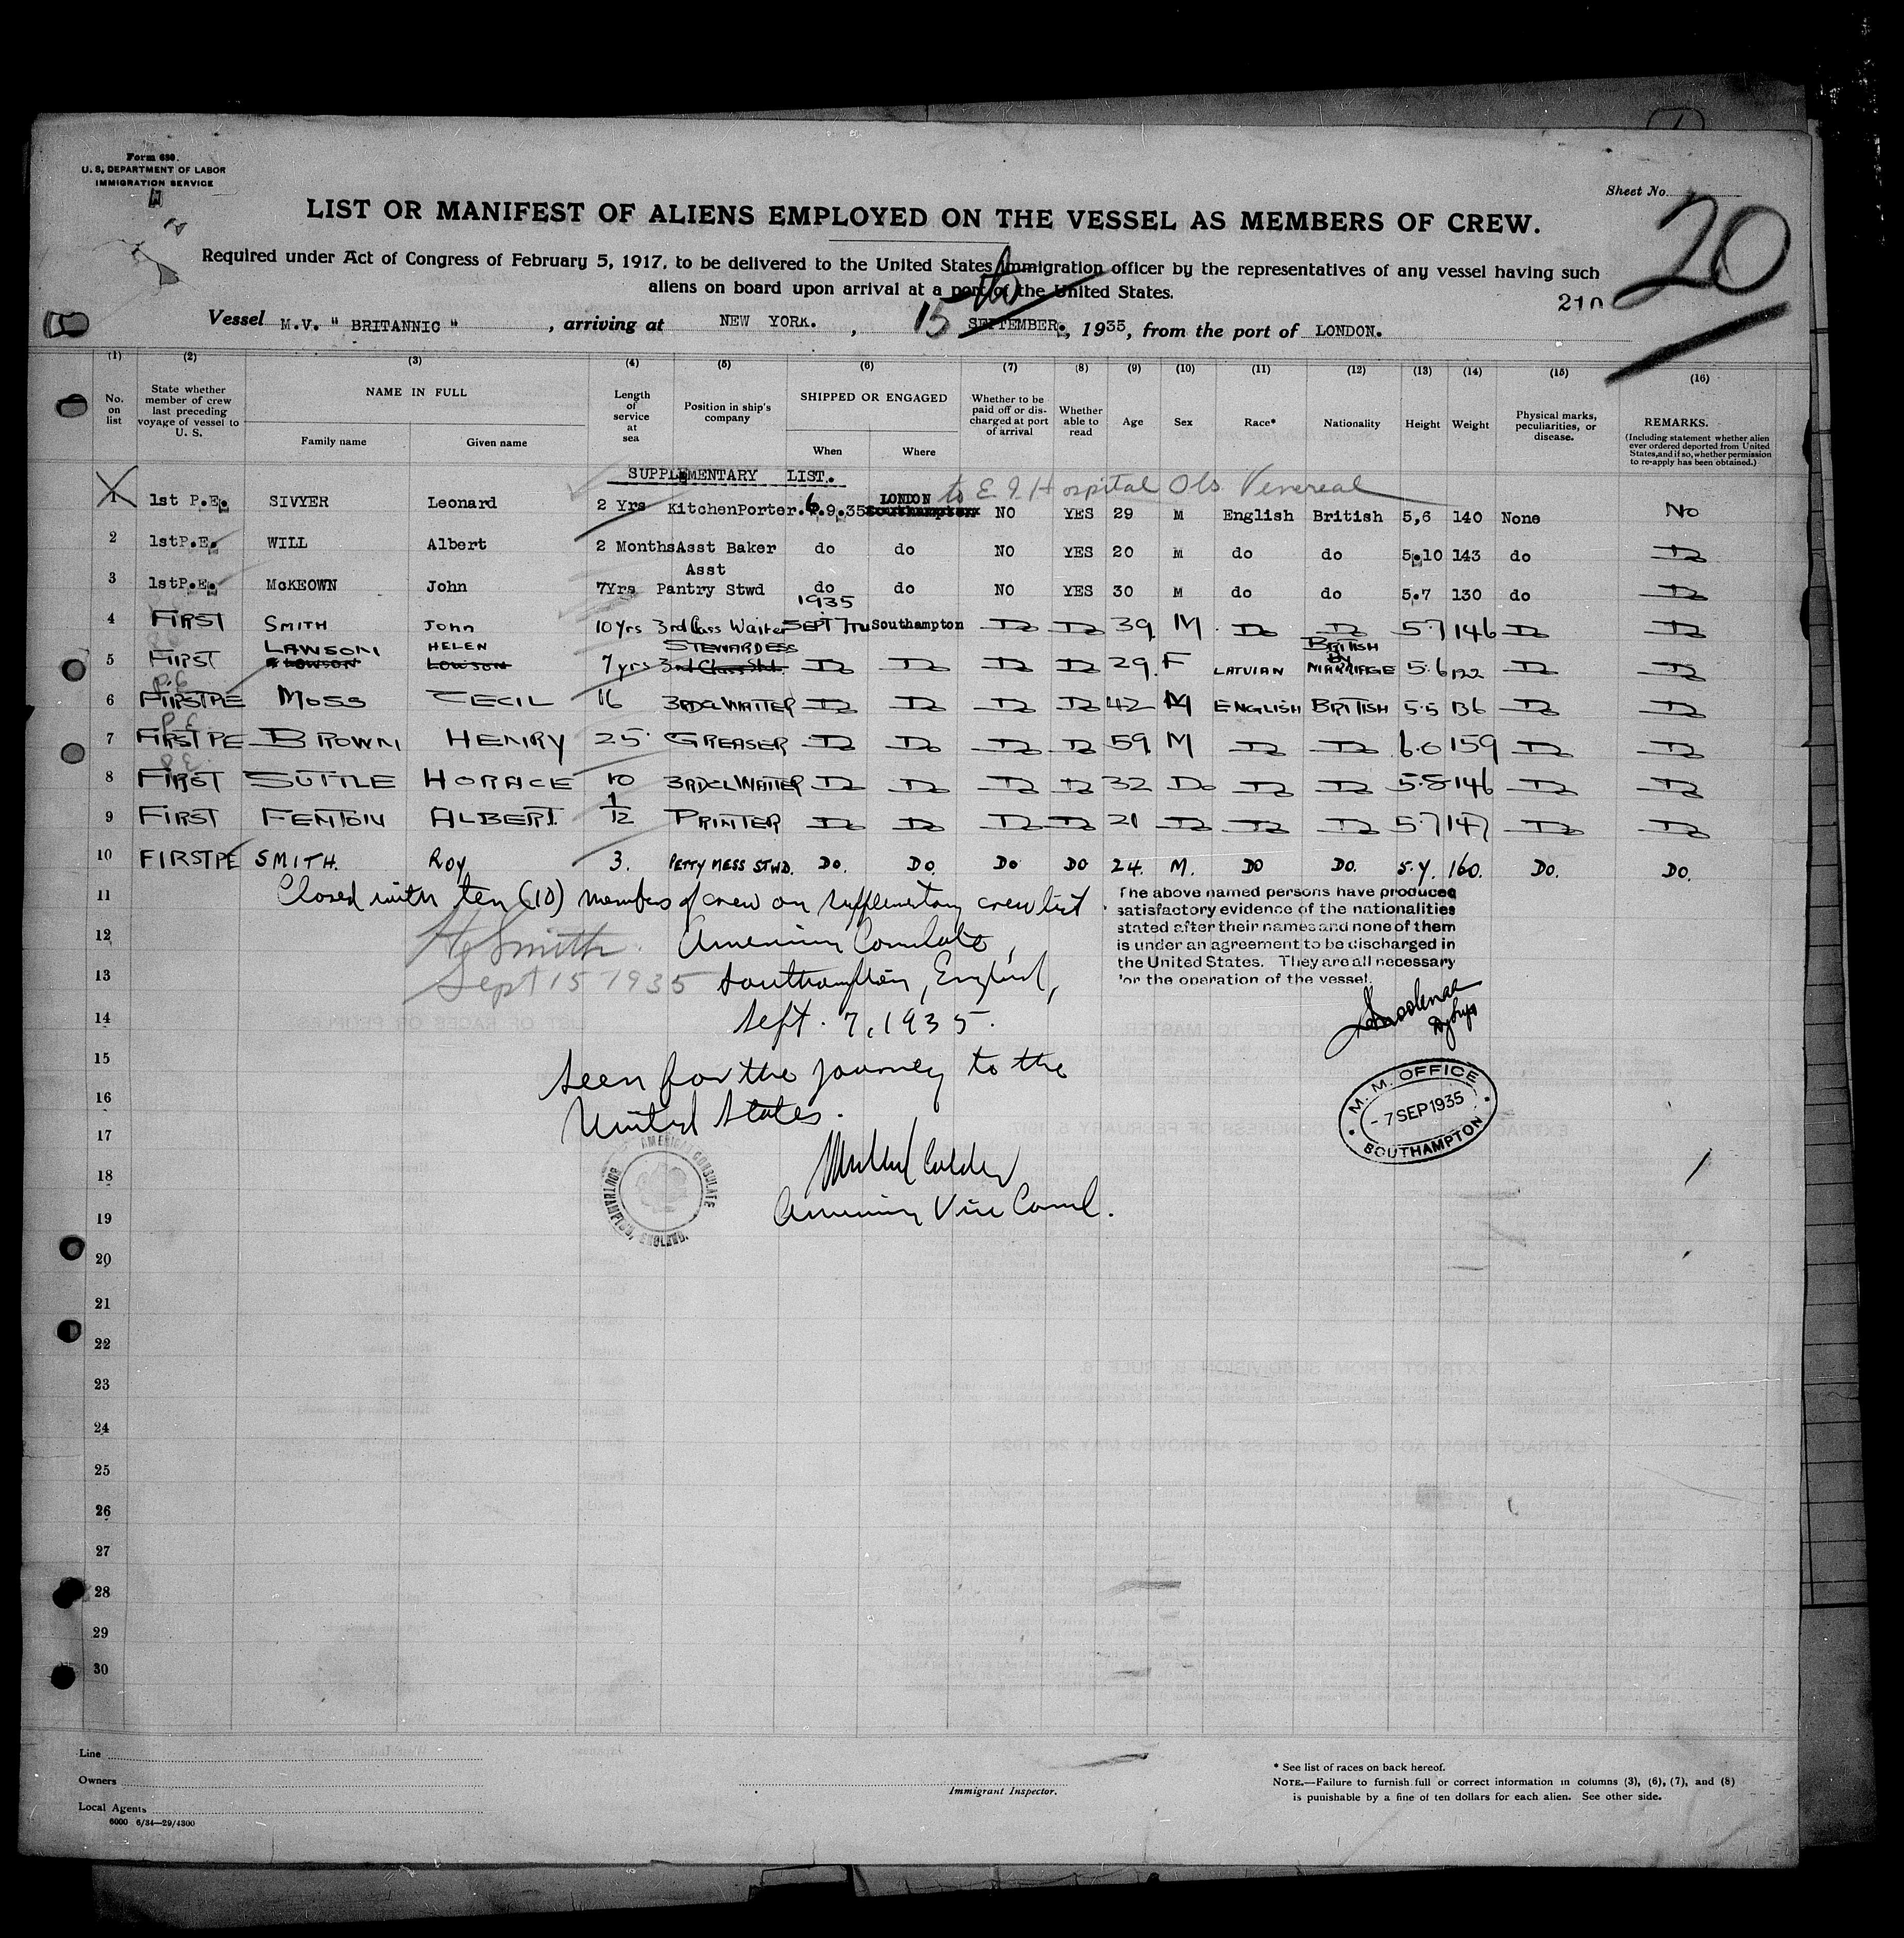 Form 630.
U. S. DEPARTMENT OF LABOR
IMMIGRATION SERVICE
Sheet No.
20
LIST OR MANIFEST OF ALIENS EMPLOYED ON THE VESSEL AS MEMBERS OF CREW.
Required under Act of Congress of February 5, 1917, to be delivered to the United States Immigration officer by the representatives of any vessel having such
aliens on board upon arrival at a port of the United States.
210
Vessel M.V. " BRITANNIC " , arriving at NEW YORK. , 15 th SEPTEMBER, 1935, from the port of LONDON.
(1) (2) (3) (4) (5) (6) (7) (8) (9) (10) (11) (12) (13) (14) (15) (16)
No. on list
State whether member of crew last preceding voyage of vessel to U. S.
NAME IN FULL
Family name
Given name
Length of service at sea
Position in ship's company
SHIPPED OR ENGAGED
When
Where
Whether to be paid off or discharged at port of arrival
Whether able to read
Age
Sex
Race*
Nationality
Height
Weight
Physical marks, peculiarities, or disease.
REMARKS.
(Including statement whether alien ever ordered deported from United States, and if so, whether permission to re-apply has been obtained.)
SUPPLEMENTARY LIST.
to E. I. Hospital Obs Venereal
1 1st P.E. SIVYER Leonard 2 Yrs KitchenPorter. 6.9.35 LONDON Southampton NO YES 29 M English British 5,6 140 None No
2 1stP.E. WILL Albert 2 Months Asst Baker do do NO YES 20 M do do 5.10 143 do Do
3 1stP.E. McKEOWN John 7Yrs Asst Pantry Stwd do do NO YES 30 M do do 5.7 130 do Do
4 FIRST SMITH John 10 Yrs 3rd Class Waiter 1935 SEPT 7TH Southampton Do Do 39 M Do Do 5.7 146 Do Do
5 FIRST LAWSON LOWSON HELEN LOWSON 7 yrs STEWARDESS 3rd Class Std. Do Do Do Do 29 F LATVIAN BRITISH BY MARRIAGE 5.6 122 Do Do
6 FIRST PE MOSS CECIL 16 3RD CL WAITER Do Do Do Do 42 M ENGLISH BRITISH 5.5 136 Do Do
7 FIRST PE BROWN HENRY 25 GREASER Do Do Do Do 59 M Do Do 6.0 159 Do Do
8 FIRST SUTTLE HORACE 10 3RD CL WAITER Do Do Do Do 32 Do Do Do 5.8 146 Do Do
9 FIRST FENTON ALBERT. 1/12 PRINTER Do Do Do Do 21 Do Do Do 5.7 147 Do Do
10 FIRST PE SMITH. ROY 3. PETTY MESS STWD. DO. DO. DO DO 24. M. DO DO. 5.7. 160. DO. DO.
11 Closed with ten (10) members of crew on supplementary crew list.
12 H Smith. American Consulate,
13 Sept 15 1935 Southampton, England,
14 Sept. 7, 1935.
15 Seen for the journey to the
16 United States.
17
18
19 American Vice Consul.
AMERICAN CONSULATE
SOUTHAMPTON, ENGLAND.
The above named persons have produced
satisfactory evidence of the nationalities
stated after their names and none of them
is under an agreement to be discharged in
the United States. They are all necessary
for the operation of the vessel.
M. M. OFFICE
- 7 SEP 1935
SOUTHAMPTON
20
21
22
23
24
25
26
27
28
29
30
Line
Owners
Local Agents
6000 6/34—29/4300
Immigrant Inspector.
* See list of races on back hereof.
NOTE.—Failure to furnish full or correct information in columns (3), (6), (7), and (8)
is punishable by a fine of ten dollars for each alien. See other side.